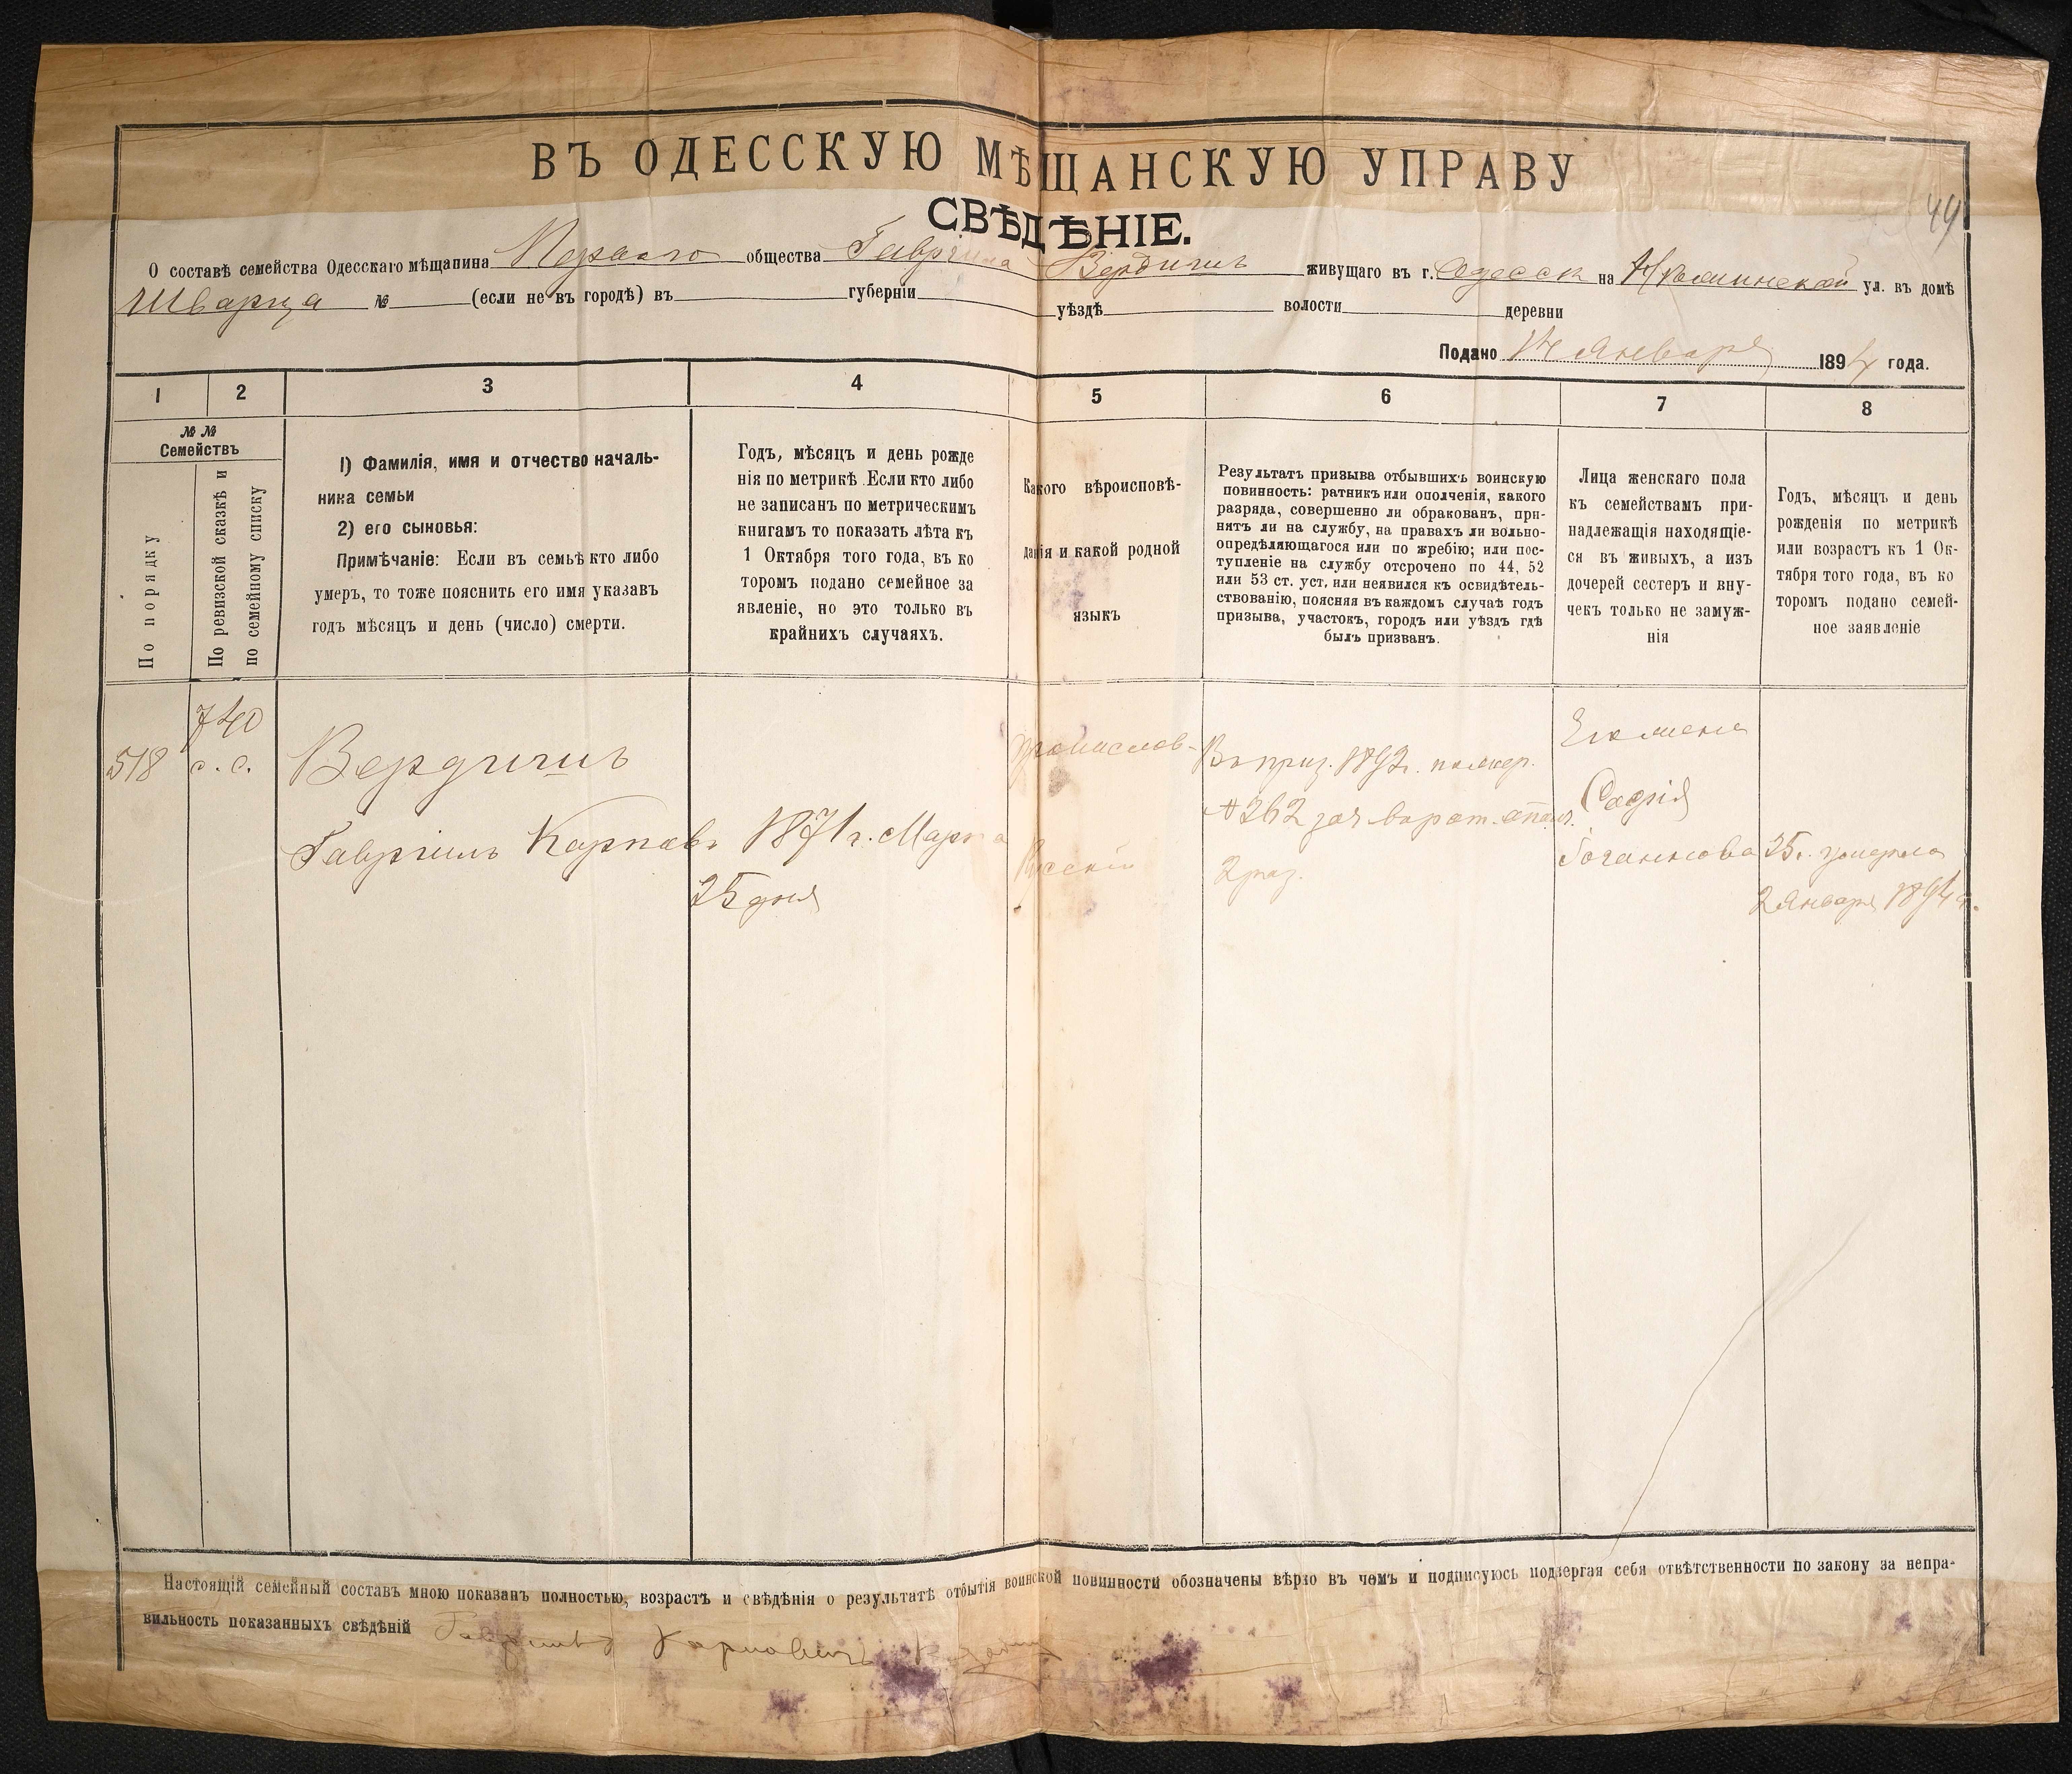 ВЪ ОДЕССКУЮ МѢЩАНСКУЮ УПРАВУ
СВѢДѢНІЕ.
49
О составѣ семейства Одесскаго мѣщанина общества Гавріила Вердичъ живущаго въ г. Одессѣ на ул. въ домѣ
Шварца № (если не въ городѣ) въ губерніи уѣздѣ волости деревни
Подано 14 Января 1894 года.
1 2 3 4 5 6 7 8
№ №
Семействъ
По порядку
По ревизской сказкѣ и
по семейному списку
1) Фамилія, имя и отчество началь-
ника семьи
2) его сыновья:
Примѣчаніе: Если въ семьѣ кто либо
умеръ, то тоже пояснить его имя указавъ
годъ мѣсяцъ и день (число) смерти.
Годъ, мѣсяцъ и день рожде
нія по метрикѣ Если кто либо
не записанъ по метрическимъ
книгамъ то показать лѣта къ
1 Октября того года, въ ко
торомъ подано семейное за
явленіе, но это только въ
крайнихъ случаяхъ.
Какого вѣроисповѣ-
данія и какой родной
языкъ
Результатъ призыва отбывшихъ воинскую
повинность: ратникъ или ополченія, какого
разряда, совершенно ли обракованъ, при-
нятъ ли на службу, на правахъ ли вольно-
опредѣляющагося или по жребію; или пос-
тупленіе на службу отсрочено по 44, 52
или 53 ст. уст, или неявился къ освидѣтель-
ствованію, поясняя въ каждомъ случаѣ годъ
призыва, участокъ, городъ или уѣздъ гдѣ
былъ призванъ.
Лица женскаго пола
къ семействамъ при-
надлежащія находящіе-
ся въ живыхъ, а изъ
дочерей сестеръ и вну-
чекъ только не замуж-
нія
Годъ, мѣсяцъ и день
рожденія по метрикѣ
или возрастъ къ 1 Ок-
тября того года, въ ко
торомъ подано семей-
ное заявленіе
518
740
с. с.
Вердичъ
Гавріилъ Карповъ
1871 г. Марта
25 дня
Православ-
Русскій
Въ приз. 1892 г.
№ 262 зач. в рат. опол.
2 раз.
Его жена
Софія
25 г. умерла
2 Января 1894 г.
Настоящій семейный составъ мною показанъ полностью, возрастъ и свѣдѣнія о результатѣ отбытія воинской повинности обозначены вѣрно въ чемъ и подписуюсь подвергая себя отвѣтственности по закону за непра-
вильность показанныхъ свѣдѣній Карповичъ